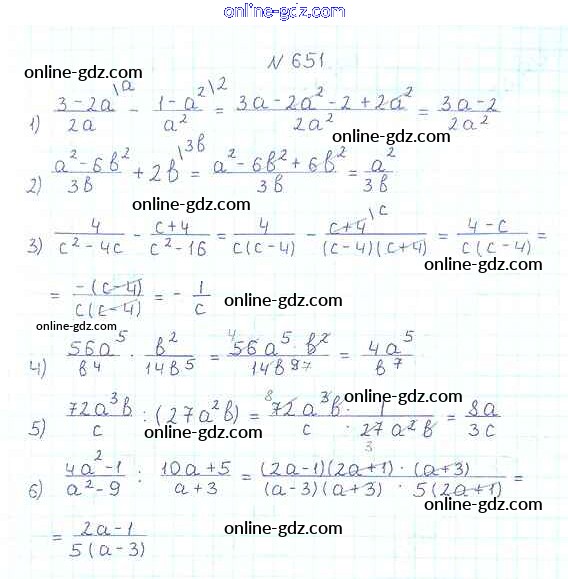 online-gdz.com
№ 651
online-gdz.com
1) (3-2a^{\a})/(2a) - (1-a^2^{\2})/(a^2) = (3a-2a^2-2+2a^2)/(2a^2) = (3a-2)/(2a^2)
online-gdz.com
online-gdz.com
2) (a^2-6b^2)/(3b) + 2b^{\3b} = (a^2-6b^2+6b^2)/(3b) = a^2/(3b)
online-gdz.com
3) 4/(c^2-4c) - (c+4)/(c^2-16) = 4/(c(c-4)) - (c+4)^{\c}/((c-4)(c+4)) = (4-c)/(c(c-4)) =
online-gdz.com
= (-(c-4))/(c(c-4)) = - 1/c
online-gdz.com
online-gdz.com
4) (56a^5)/(b^4) · (b^2)/(14b^5) = (^4 56a^5 · b^2)/(14b^{9 7}) = (4a^5)/(b^7)
online-gdz.com
5) (72a^3b)/c : (27a^2b) = (^8 72a^3b · 1)/(c · _3 27a^2b) = (8a)/(3c)
online-gdz.com
online-gdz.com
6) (4a^2-1)/(a^2-9) : (10a+5)/(a+3) = ((2a-1)(2a+1) · (a+3))/((a-3)(a+3) · 5(2a+1)) =
online-gdz.com
= (2a-1)/(5(a-3))
online-gdz.com